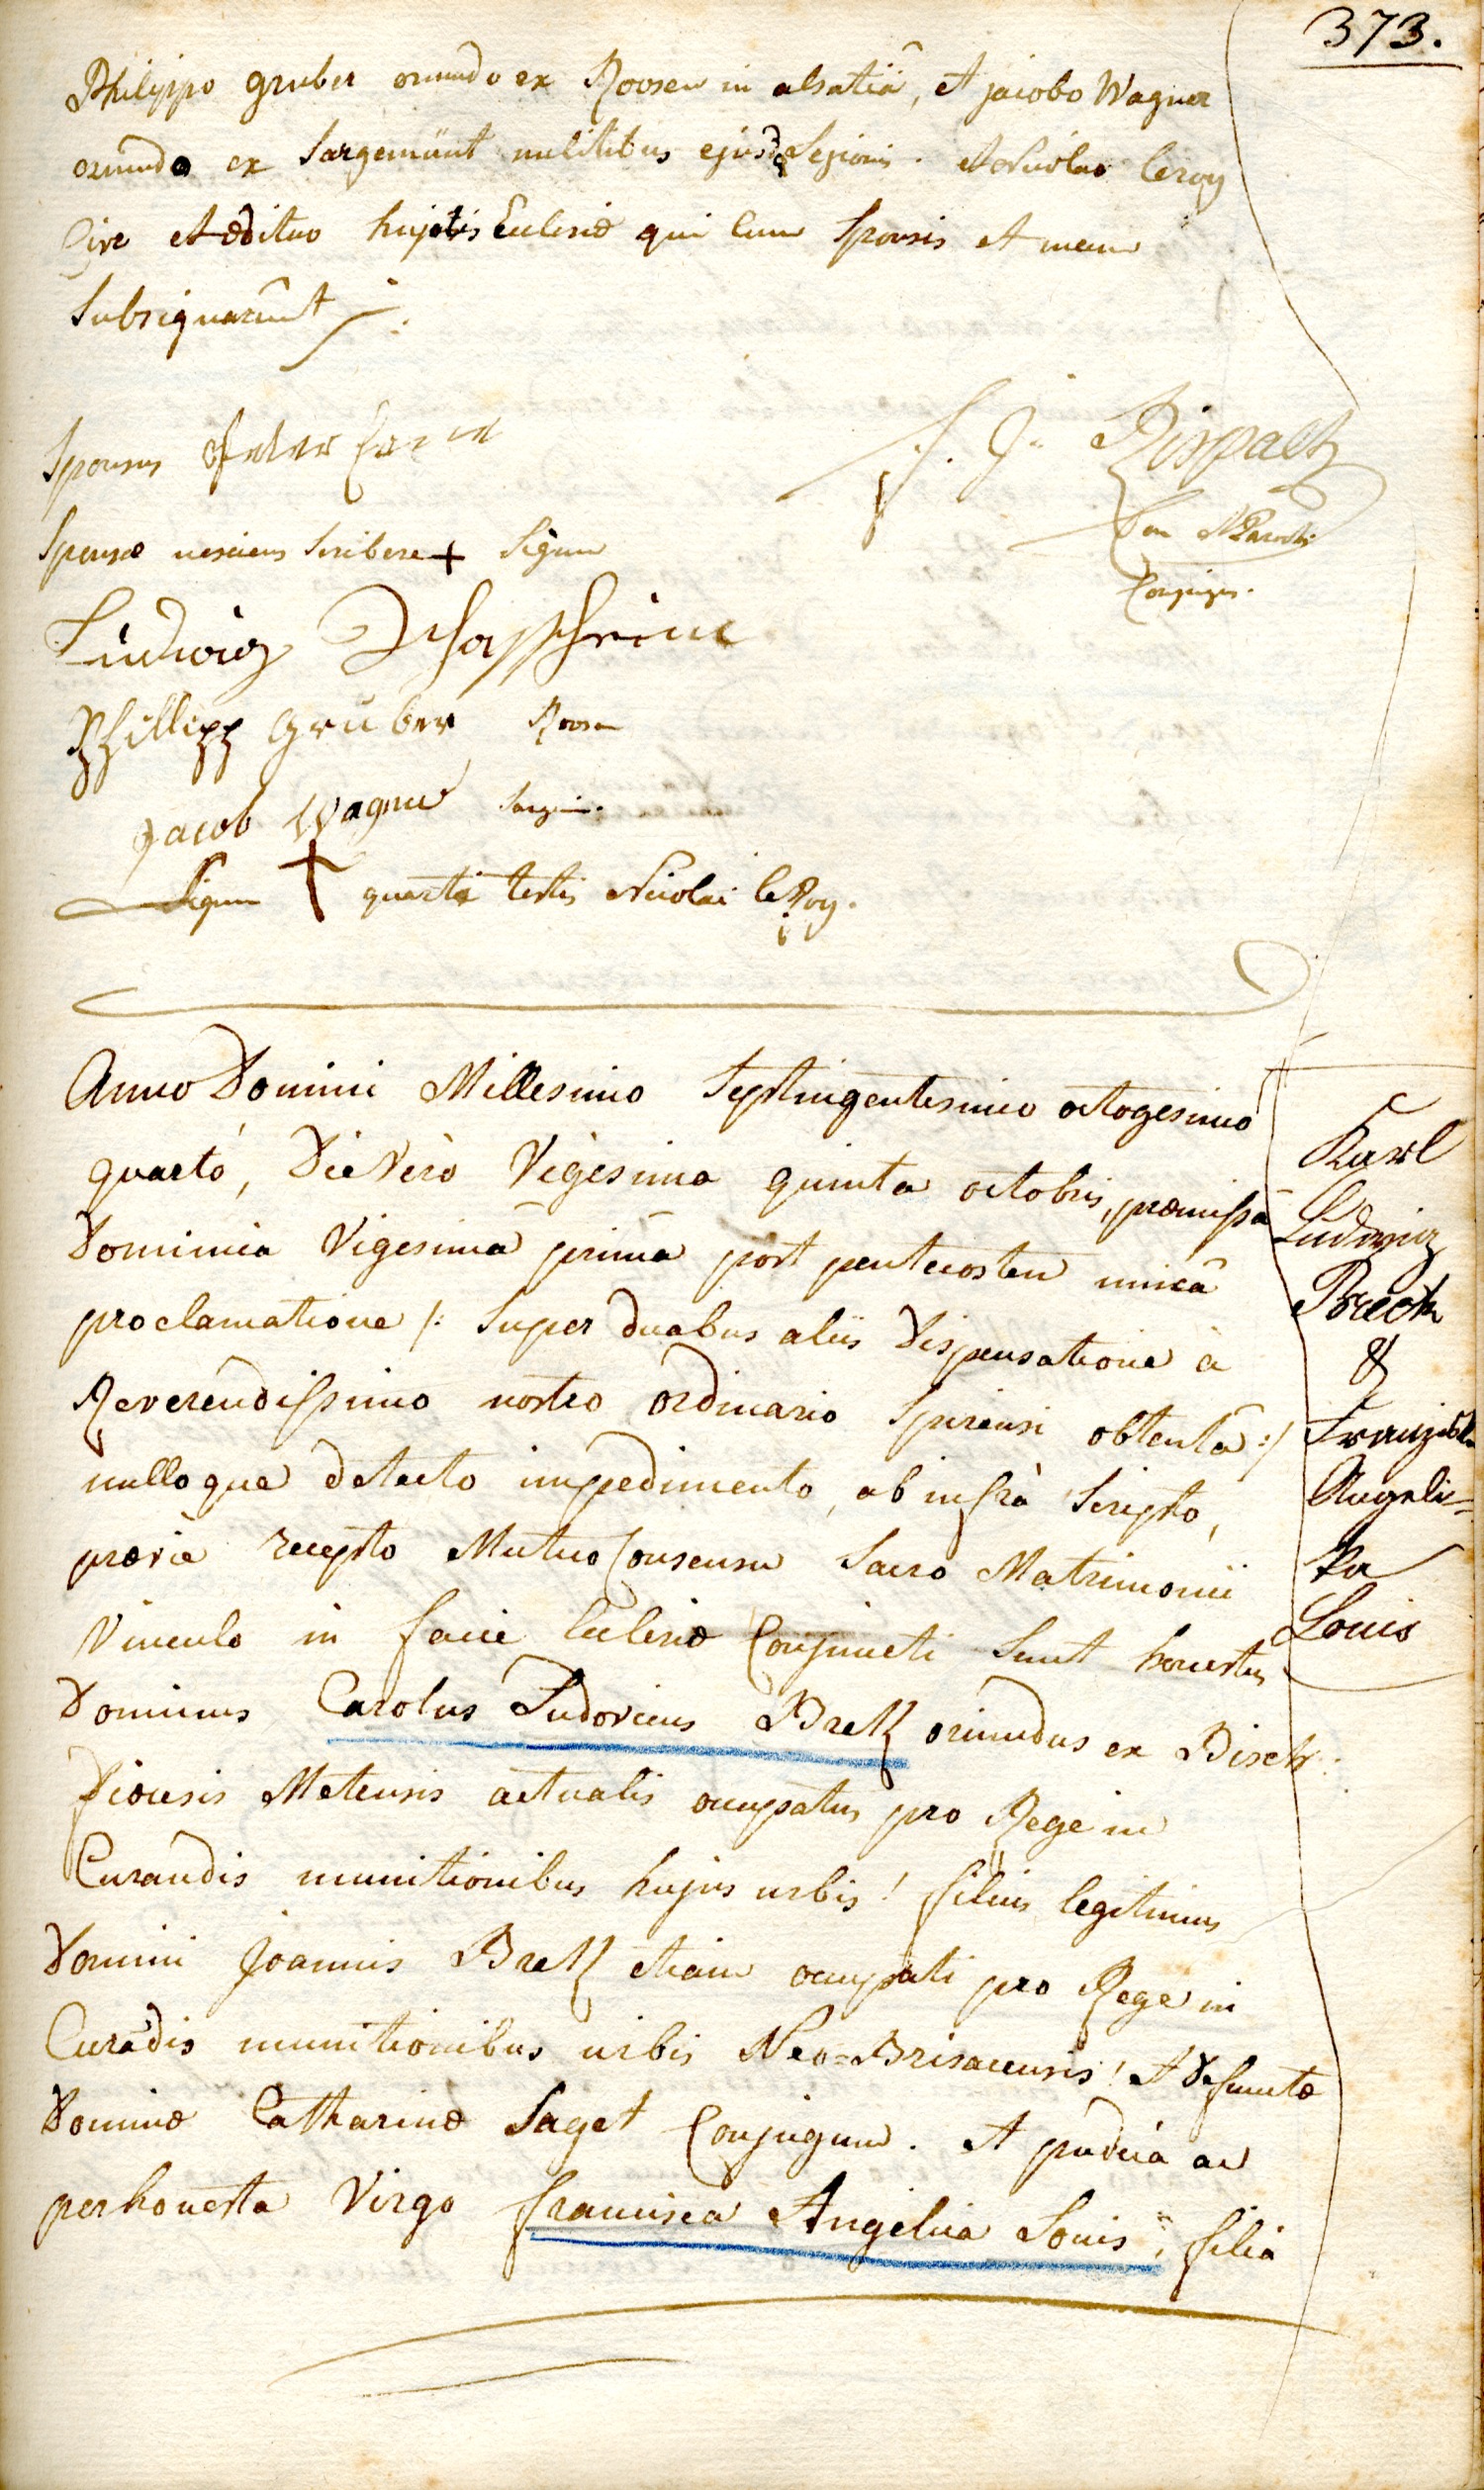 373.
Philippo gruber oriundo ex Roosen in alsatiâ, et jacobo Wagner
oriundo ex Sargemünt militibus ejusd legionis. et Nicolao leroy
Cive et ædituo hujatis Ecclesiæ qui cum Sponsis et mecum
Subsignarunt
Sponsus Peter
F. J. Rispaltz
Can
Conjuges.
Sponsæ nesciens Scribere + Signum
Ludwig Schaffheim
Phillipp gruber Roosen
Jacob Wagner Sargm.
Signum + quarti testis Nicolai leRoy.
Anno Domini Millesimo Septingentesimo octogesimo
quarto, Die Verò Vigesima quinta octobris, præmissâ
Dominica Vigesimâ primâ post pentecosten unicâ
proclamatione /: Super duabus aliis Dispensatione à
Reverendissimo nostro ordinario Spirensi obtentâ :/
nulloque detecto impedimento, ab infrà Scripto,
prævie recepto Mutuo Consensu Sacro Matrimonii
Vinculo in facie Ecclesiæ Conjuncti Sunt honestus
Dominus Carolus Ludovicus Bretz oriundus ex Bisch:
Diocesis Metensis actualis occupatus pro Rege in
Curandis munitionibus hujus urbis! filius legitimus
Domini Joannis Bretz etiam occupati pro Rege in
Curādis munitionibus urbis Neo=Brisacensis! et Defunctæ
Dominæ Catharinæ Saget Conjugum. et pudica ac
perhonesta Virgo francisca Angelica Louis, filia
Karl
Ludwig
Breck
&
Franziska
Angeli=
ka
Louis